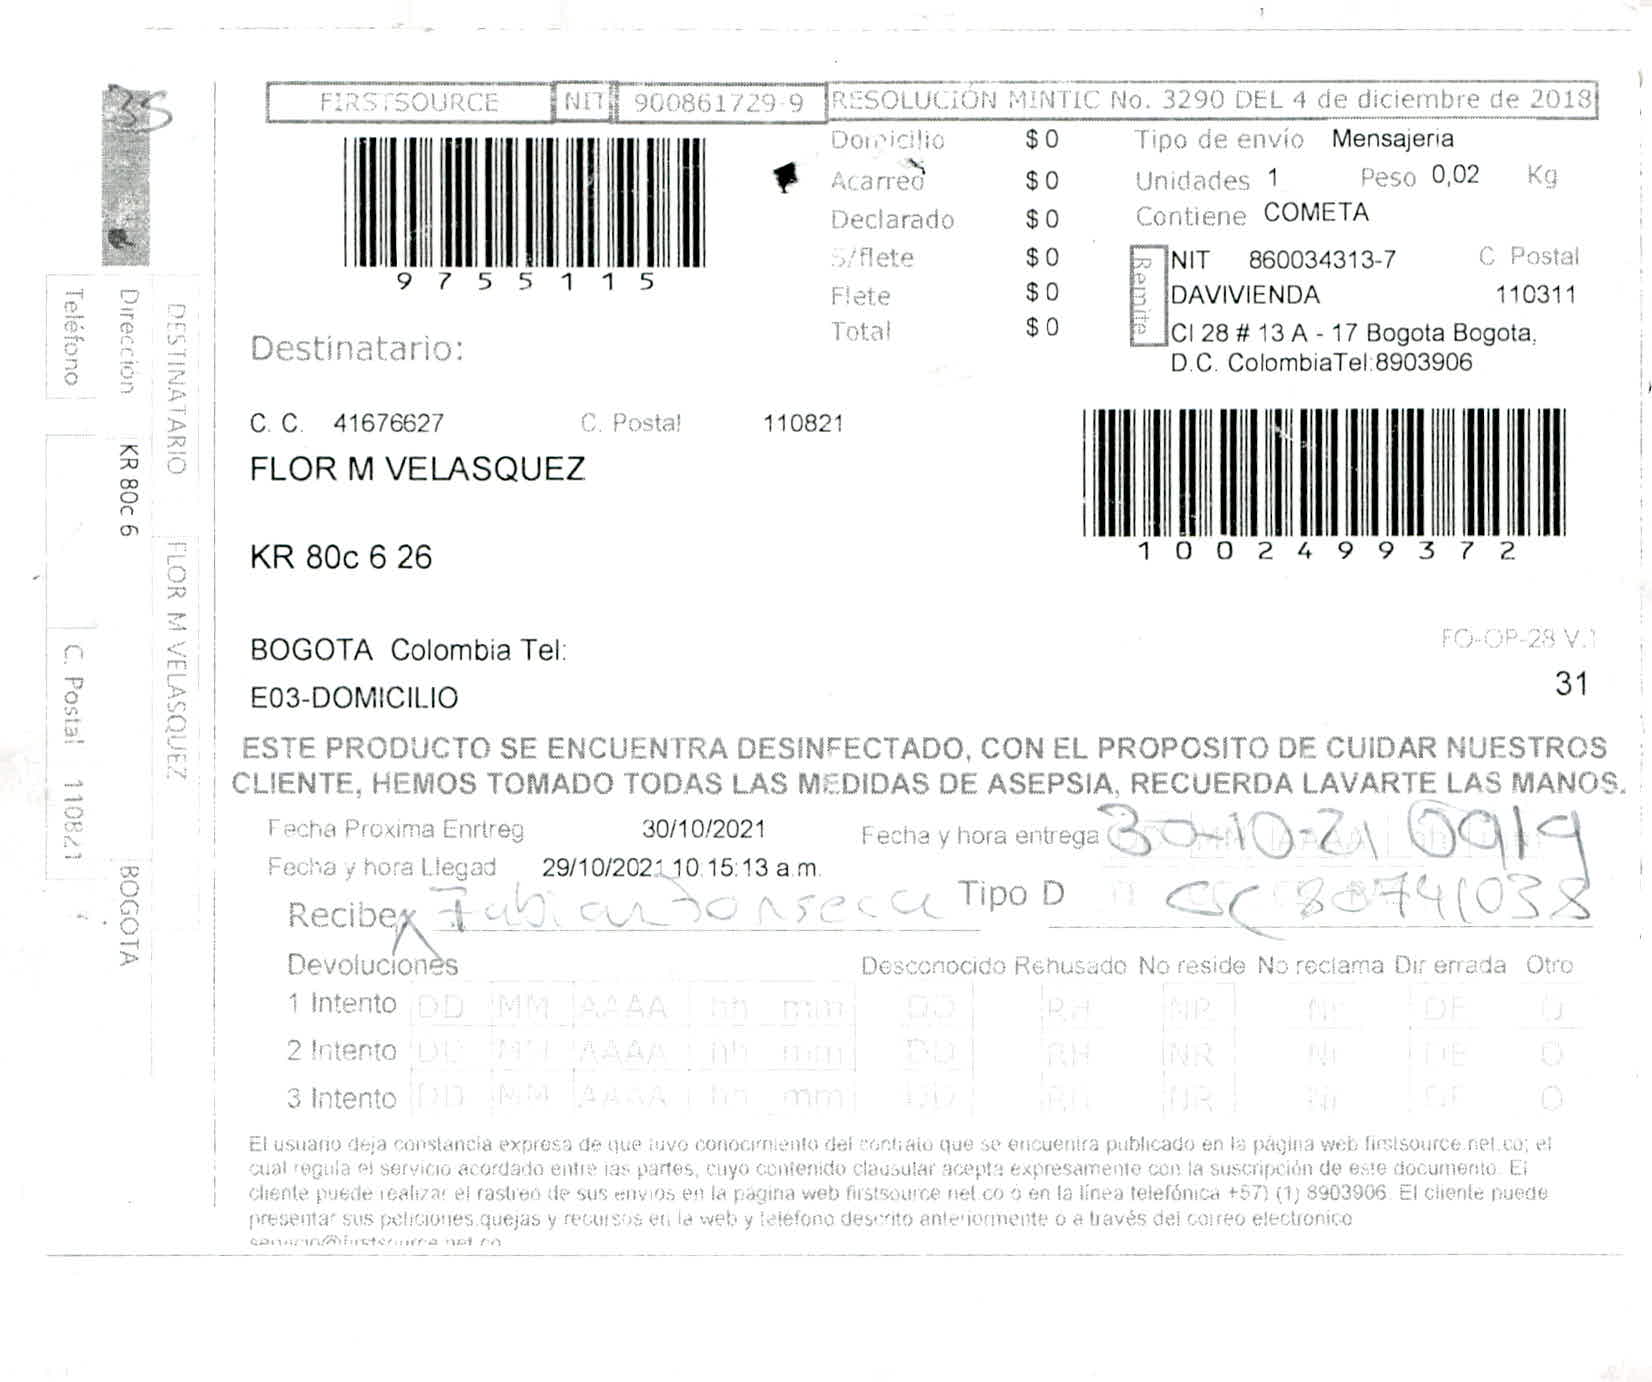 35
FIRSTSOURCE NIT 900861729-9 RESOLUCIÓN MINTIC No. 3290 DEL 4 de diciembre de 2018
9755115
Domicilio $ 0
Acarreo $ 0
Declarado $ 0
S/flete $ 0
Flete $ 0
Total $ 0
Tipo de envío Mensajeria
Unidades 1 Peso 0,02 Kg
Contiene COMETA
Remite
NIT 860034313-7 C Postal
DAVIVIENDA 110311
Cl 28 # 13 A - 17 Bogota Bogota,
D.C. ColombiaTel:8903906
1002499372
Destinatario:
C. C. 41676627 C. Postal 110821
FLOR M VELASQUEZ
KR 80c 6 26
BOGOTA Colombia Tel:
E03-DOMICILIO
FO-OP-28 V.1
31
ESTE PRODUCTO SE ENCUENTRA DESINFECTADO, CON EL PROPOSITO DE CUIDAR NUESTROS
CLIENTE, HEMOS TOMADO TODAS LAS MEDIDAS DE ASEPSIA, RECUERDA LAVARTE LAS MANOS.
Fecha Proxima Enrtreg 30/10/2021 Fecha y hora entrega 30-10-21
Fecha y hora Llegad 29/10/2021 10:15:13 a.m.
Recibe Fabian Fonseca Tipo D CC 80741038
Devoluciones Desconocido Rehusado No reside No reclama Dir errada Otro
1 Intento DD MM AAAA hh mm DD RH NR Nr DE O
2 Intento DD MM AAAA hh mm DD RH NR Nr DE O
3 Intento DD MM AAAA hh mm DD RH NR Nr DE O
El usuario deja constancia expresa de que tuvo conocimiento del contrato que se encuentra publicado en la página web firstsource.net.co; el
cual regula el servicio acordado entre las partes, cuyo contenido clausular acepta expresamente con la suscripción de este documento. El
cliente puede realizar el rastreo de sus envios en la página web firstsource net co o en la línea telefónica +57) (1) 8903906. El cliente puede
presentar sus peticiones,quejas y recursos en la web y teléfono descrito anteriormente o a través del correo electronico
servicio@firstsource.net.co
DESTINATARIO FLOR M VELASQUEZ
Dirección KR 80c 6 BOGOTA
Teléfono C. Postal 110821